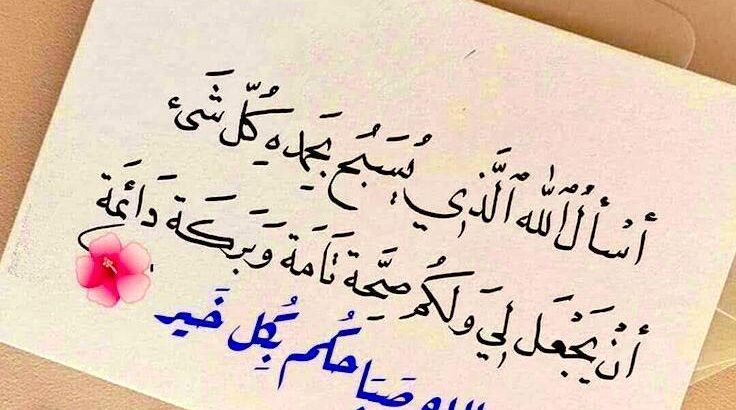 أسألُ ٱللّٰه ٱلَّذِي يُسَبِّح بِحَمْدِهِ كُلّ شَيْء
أنْ يَجْعَلَ لِي وَلَكُم صِحَّة تَامَة وَبَرَكَة دَائِمَة
صَبَاحكُم بِكُلِ خَير